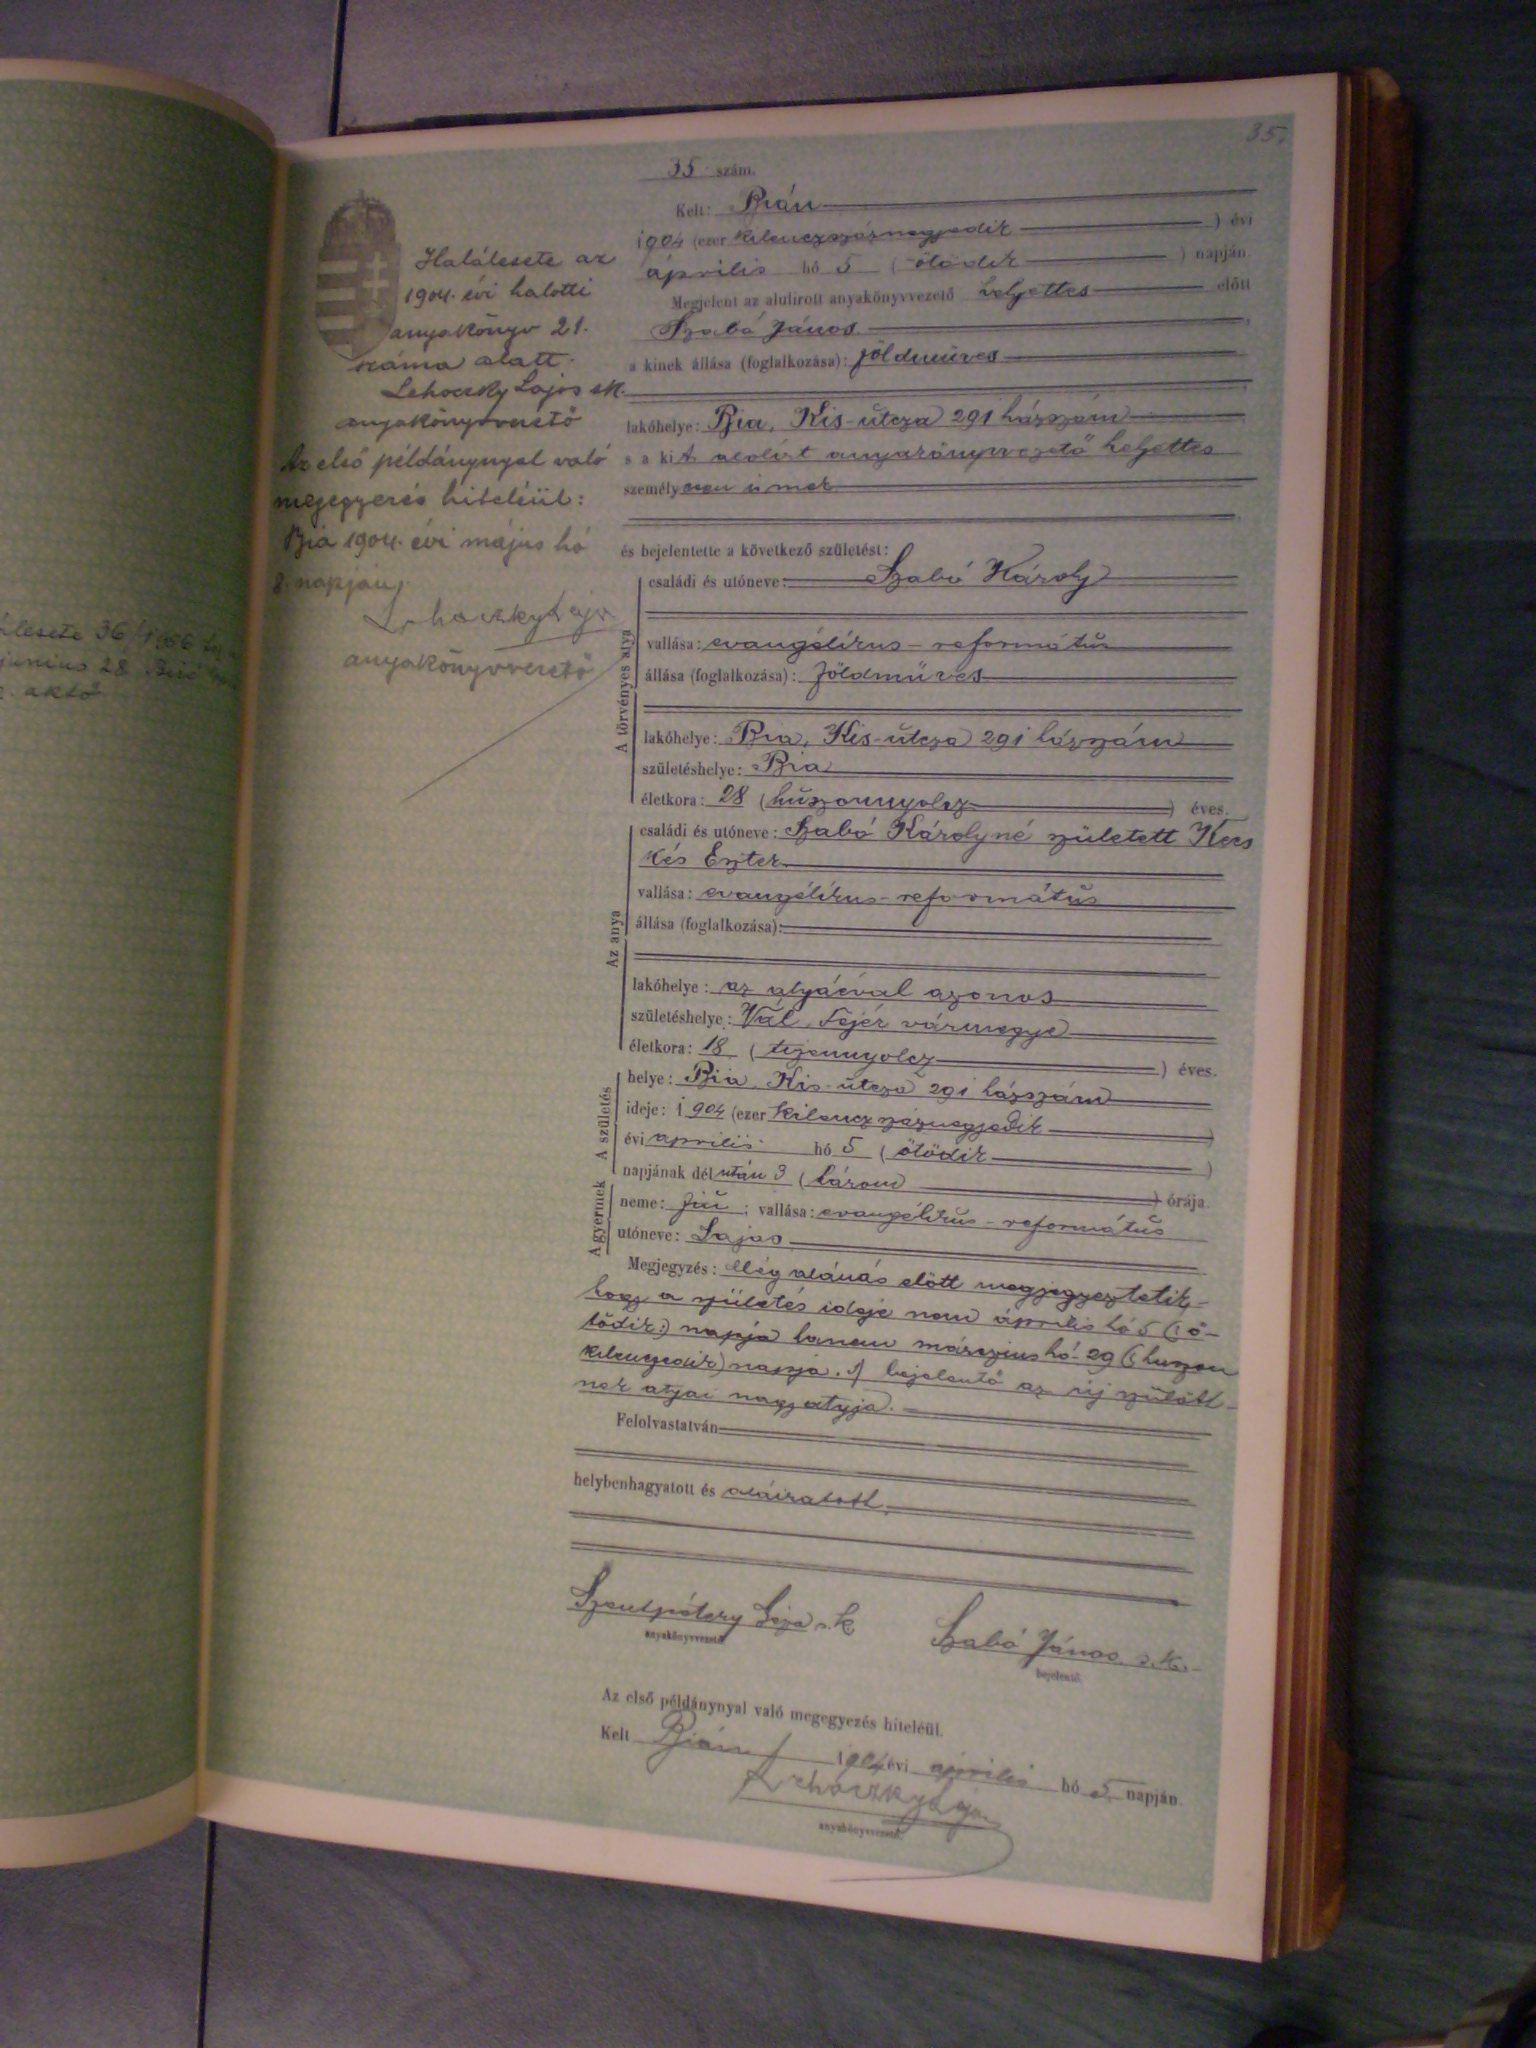 35.
35 szám.
Kelt: Bián
1904 (ezer kilenczszáznegyedik ) évi
április hó 5 ( ötödik ) napján.
Megjelent az alulirott anyakönyvvezető helyettes előtt
Szabó János
a kinek állása (foglalkozása): földmüves
lakóhelye: Bia, Kis-útcza 291 házszám
s a kit alolirt anyakönyvvezető helyettes
személyesen ismer
és bejelentette a következő születést:
A törvényes atya
családi és utóneve: Szabó Károly
vallása: evangélikus-református
állása (foglalkozása): földmüves
lakóhelye: Bia, Kis-útcza 291 házszám
születéshelye: Bia
életkora: 28 (huszonnyolcz ) éves.
Az anya
családi és utóneve: Szabó Károlyné született Kecs
kés Eszter
vallása: evangélikus-református
állása (foglalkozása):
lakóhelye: az atyáéval azonos
születéshelye: Vál, Fejér vármegye
életkora: 18 ( tizennyolcz ) éves.
A születés
helye: Bia, Kis-útcza 291 házszám
ideje: 1904 (ezer kilenczszáznegyedik )
évi április hó 5 ( ötödik )
napjának dél után 3 ( három ) órája.
A gyermek
neme: fiú ; vallása: evangélikus-református
utóneve: Lajos
Megjegyzés: Még aláirás előtt megjegyeztetik,
hogy a születés ideje nem április hó 5 (: ö-
tödik:) napja hanem márczius hó 29 (: huszon
kilenczedik) napja. A bejelentő az új szülött-
nek atyai nagyatyja.
Felolvastatván
helybenhagyatott és aláiratott.
Szentpétery Géza s.k
anyakönyvvezető
Szabó János s.k.
bejelentő.
Az első példánynyal való megegyezés hiteléül.
Kelt Bián 1904 évi április hó 5. napján.
Lehoczky Lajos
anyakönyvvezető
Halálesete az
1904. évi halotti
anyakönyv 21.
száma alatt.
Lehoczky Lajos sk.
anyakönyvvezető
Az első példánynyal való
megegyezés hiteléül:
Bia 1904. évi május hó
8. napján.
Lehoczky Lajos
anyakönyvvezető
36/1956
junius 28